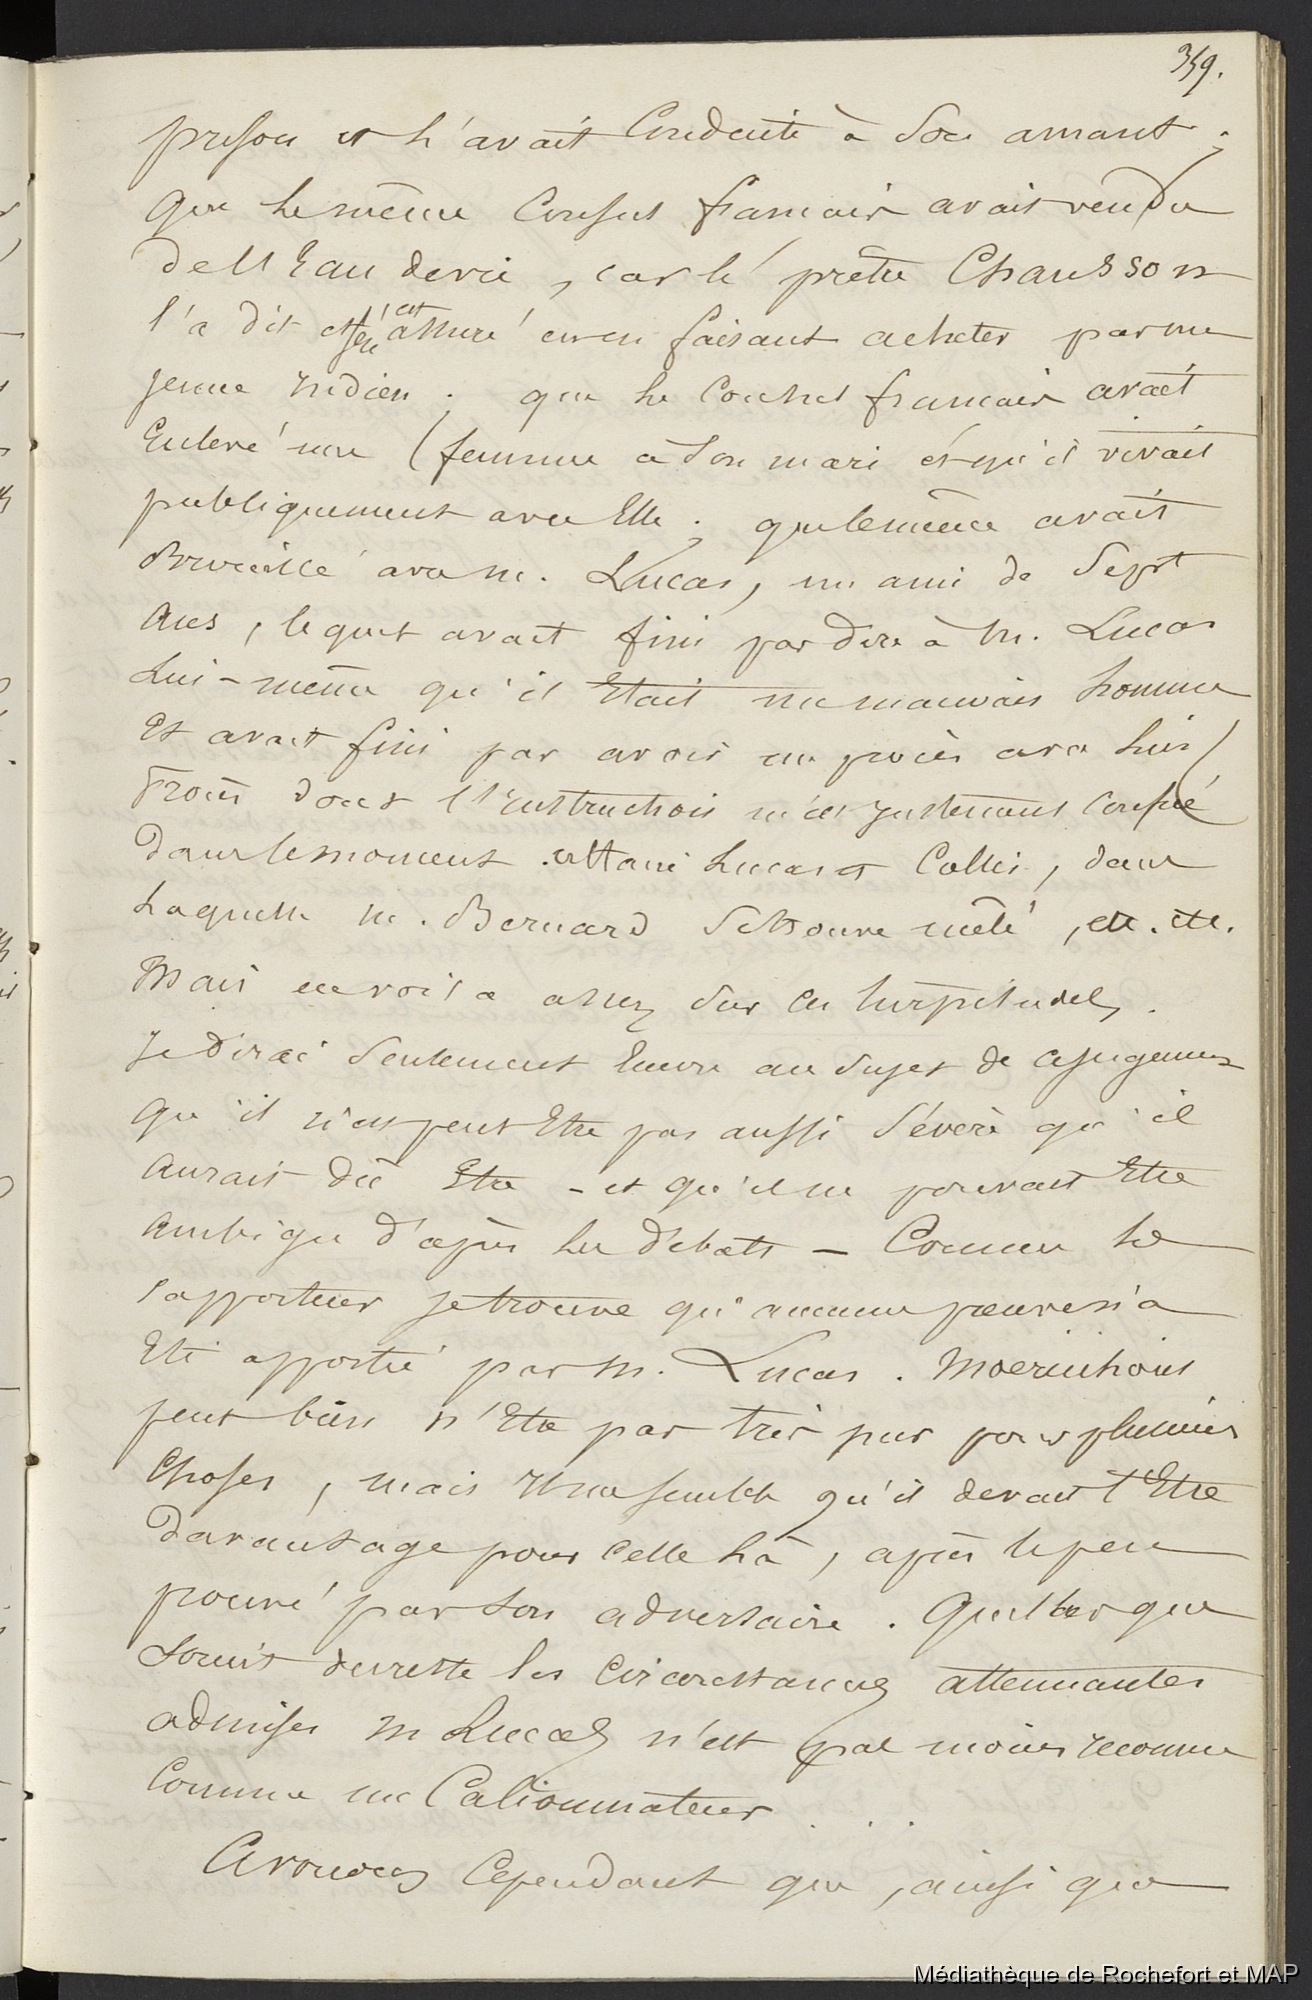 359.
prison et l'avait conduite à son amant ;
que le même Consul français avait vendu
de l'Eau de vie, car le prêtre Chausson
l'a dit et s'en est assuré en en faisant acheter par un
jeune Indien ; que le Consul français avait
Enlevé une femme à son mari et qu'il vivait
publiquement avec Elle ; que le même avait
Brouillé avec M. Lucas, un ami de Sept
Ans, lequel avait fini par dire à M. Lucas
Lui-même qu'il Etait un mauvais homme
Et avait fini par avoir un procès avec lui,
Procès dont l'instruction m'est justement confié
dans le moment. affaire Lucas et Collis, dans
Laquelle M. Bernard se trouve mêlé, etc. etc.
Mais en voilà assez sur ces turpitudes.
Je dirai seulement Encore au sujet de ce jugement
qu'il n'est peut Etre pas aussi Sévère qu'il
Aurait dû Etre - et qu'il ne pouvait Etre
Ambigu d'après les débats — Comme le
rapporteur je trouve qu'aucune preuve n'a
Eté apporté par M. Lucas. Moerenhout
peut bien n'Etre pas très pur pour plusieurs
Choses, mais Il me semble qu'il devait l'Etre
Davantage pour celle là, après le peu
prouvé par son adversaire. Quelles que
Soient du reste les circonstances attenuantes
admises M Lucas n'est pas moins reconnu
Comme un Caliomnateur . . .
Avouons Cependant que, ainsi que
Médiathèque de Rochefort et MAP